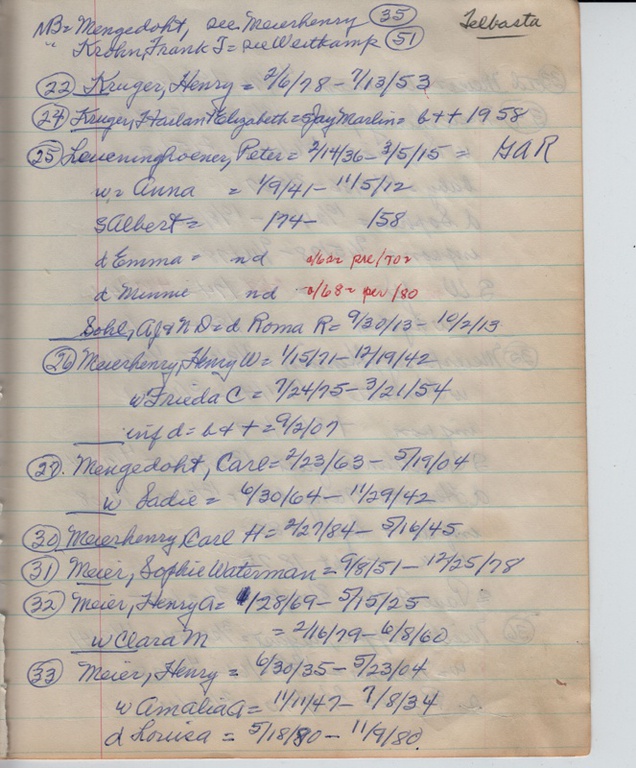 Telbasta
NB= Mengedoht, see Meierhenry (35)
" Krohn, Frank J= see Westkamp (51)
(22) Kruger, Henry = 2/6/78 - 7/13/53
(24) Kruger, Harlan + Elizabeth = Jay Marlin = b++ 1958
(25) Loueninghoener, Peter = 2/14/36 - 3/5/15 = GAR
w = Anna = 1/9/41 - 11/5/12
s Albert = 174 - 158
d Emma = nd a/62 = pre/70=
d Minnie nd a/68 = per/80
Sohl, A J & N D = d Roma R = 9/30/13 - 10/2/13
(26) Meierhenry, Henry W = 1/15/71 - 12/19/42
w Frieda C = 7/24/75 - 3/21/54
inf d = b++ = 9/2/07
Mengedoht, Carl = 2/23/63 - 5/19/04
w Sadie = 6/30/64 - 11/29/42
(30) Meierhenry, Carl H = 2/27/84 - 5/16/45
(31) Meier, Sophie Waterman = 9/8/51 - 12/25/78
(32) Meier, Henry A = 1/28/69 - 5/15/25
w Clara M = 2/16/79 - 6/8/60
(33) Meier, Henry = 6/30/35 - 5/23/04
w Amalia A = 11/11/47 - 7/8/34
d Louisa = 5/18/80 - 11/9/80